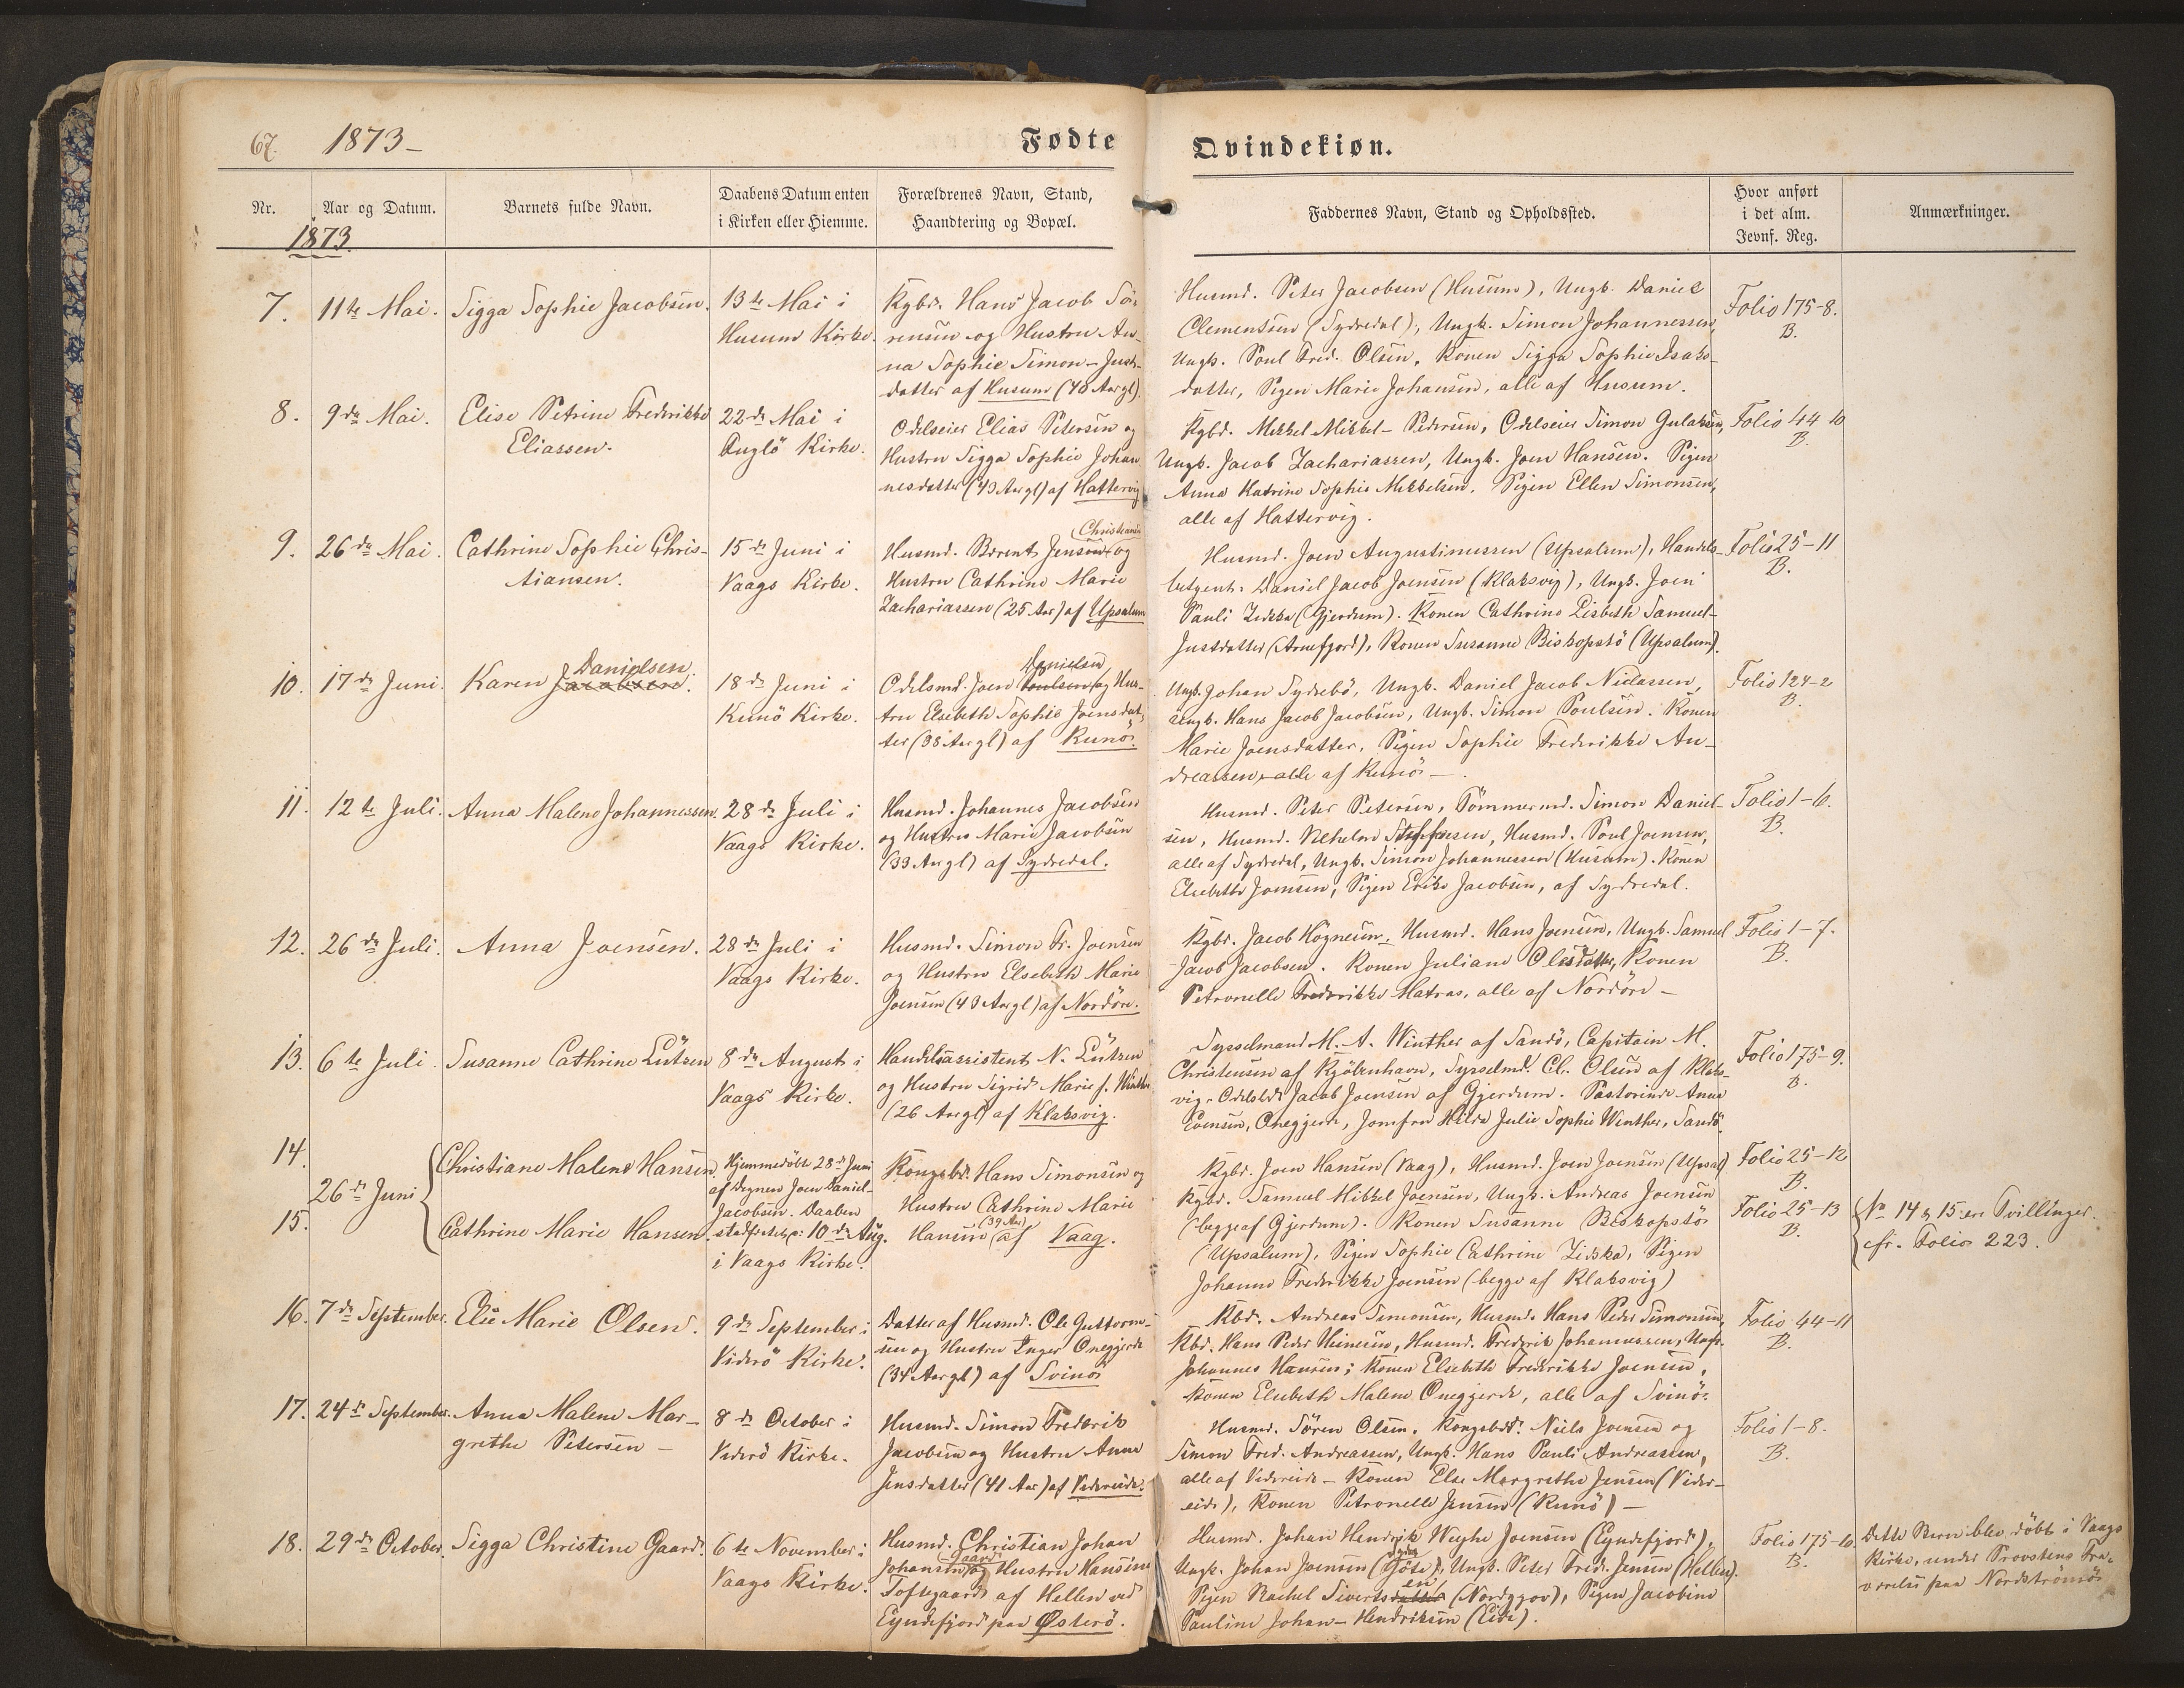 67. 1873-
Fødte
Qvindekiøn.
Nr.
Aar og Datum.
Barnets fulde Navn.
Daabens Datum enten
i Kirken eller Hiemme.
Forældrenes Navn, Stand,
Haandtering og Bopæl.
Faddernes Navn, Stand og Opholdssted.
Hvor anført
i det alm.
Jevnf. Reg.
Anmærkninger.
1873
7.
11te Mai.
Sigga Sophie Jacobsen.
13te Mai i
Husum Kirke.
Kgbd. Hans Jacob Sø-
rensen og Hustru An-
na Sophie Simon-Just-
datter af Husum (40 Aar gl).
Husmd. Peter Jacobsen (Husum), Ungk. Daniel
Clementsen (Sydredal), Ungk. Simon Johannessen,
Ungk. Poul Fred. Olsen, Konen Sigga Sophie Isaks-
datter, Pigen Marie Johansen, alle af Husum.
Folio 175-8.
B.
8.
9de Mai.
Elise Petrine Frederikke
Eliassen.
22de Mai i
Fuglö Kirke.
Odelseier Elias Petersen og
Hustru Sigga Sophie Johan
nesdatter (43 Aar gl) af Hattervig
Kgbd. Mikkel Mikkel-Pedersen, Odelseier Simon Gulaksen,
Ungk. Jacob Zachariassen, Ungk. Joen Hansen. Pigen
Anna Katrine Sophie Mikkelsen. Pigen Ellen Simonsen,
alle af Hattervig.
Folio 44 10
B.
9.
26de Mai.
Cathrine Sophie Chris-
tiansen.
15de Juni i
Vaags Kirke.
Christiansen
Husmd. Berent Jensen og
Hustru Cathrine Marie
Zachariassen (25 Aar) af Upsalum
Husmd. Joen Augustinussen (Upsalum), Handels-
betjent. Daniel Jacob Joensen (Klaksvig), Ungk. Joen
Pauli Ziska (Gjerdum). Konen Cathrine Lisbeth Samuel-
Justdatter (Arnefjord), Konen Susanne Biskopstö (Upsalum).
Folio 25-11
B.
10.
17de Juni.
Danielsen
Karen Jacobsen.
18de Juni i
Kunö Kirke.
Danielsen
Odelsmd. Joen Poulsen og Hus-
tru Elsebeth Sophie Joensdat-
ter (38 Aar gl) af Kunö.
Ungk. Johan Sydrebö, Ungk. Daniel Jacob Niclassen,
Ungk. Hans Jacob Jacobsen, Ungk. Simon Poulsen. Konen
Marie Joensdatter, Pigen Sophie Frederikke An-
dreassen, alle af Kunö -
Folio 124-2
B.
11.
12te Juli.
Anna Malene Johannessen.
28de Juli i
Vaags Kirke.
Husmd. Johannes Jacobsen
og Hustru Marie Jacobsen
(33 Aar gl) af Sydredal.
Husmd. Peter Petersen, Tömmermd. Simon Daniel-
sen, Husmd. Steffensen, Husmd. Poul Joensen,
alle af Sydredal, Ungk. Simon Johannessen (Husum). Konen
Elsebeth Joensen, Pigen Erike Jacobsen, af Sydredal.
Folio 1-6.
B.
12.
26de Juli.
Anna Joensen.
28de Juli i
Vaags Kirke.
Husmd. Simon Fr. Joensen
og Hustru Elsebeth Marie
Joensen (43 Aar gl) af Nordöre.
Kgbd. Jacob Högnesen, Husmd. Hans Joensen, Ungk. Samuel
Jacob Jacobsen. Konen Juliane Olesdatter, Konen
Petronelle Frederikke Matras, alle af Nordöre -
Folio 1-7.
B.
13.
6te Juli.
Susanne Cathrine Lützen
8de August i
Vaags Kirke.
Handelsassistent N. Lützen
og Hustru Sigrid Marie f. Winther
(26 Aar gl) af Klaksvig.
Sysselmand M. A. Winther af Sandö, Capitain M.
Christensen af Kjöbenhavn, Sysselmd. Cl. Olsen af Klaks-
vig. Jacob Joensen af Gjerdum. Pastorinde Anna
Evensen, Oneggjerde, Jomfru Hilda Julie Sophie Winther, Sandö.
Folio 175-9.
B.
14.
15.
26de Juni
Christiane Malene Hansen.
Cathrine Marie Hansen.
Hjemmedöbt 28de Juni
af Degnen Joen Daniel-
Jacobsen. Daaben
stadfæstet p: 10de Aug.
i Vaags Kirke.
Kongsbd. Hans Simonsen og
Hustru Cathrine Marie
(39 Aar)
Hansen af Vaag.
Kgbd. Joen Hansen (Vaag), Husmd. Joen Joensen (Upsal)
Kgbd. Samuel Mikkel Joensen, Ungk. Andreas Joensen
(begge af Gjerdum). Konen Susanne Biskopstö
(Upsalum), Pigen Sophie Cathrine Ziska, Pigen
Johanne Frederikke Joensen (begge af Klaksvig)
Folio 25-12
B.
Folio 25-13
B.
No 14 & 15 ere Tvillinger.
cfr. Folio 223.
16.
7de September.
Elie Marie Olsen.
9de September i
Viderö Kirke.
Datter af Husmd. Ole Guttorm-
sen og Hustru Inger Oneggjerde
(34 Aar gl) af Svinö
Kbd. Andreas Simonsen, Husmd. Hans Peder Simonsen,
Kbd. Hans Peder Heinesen, Husmd. Frederik Johannessen, Ungk.
Johannes Hansen; Konen Elsebeth Frederikke Joensen,
Konen Elsebeth Malene Oneggjerde, alle af Svinö.
Folio 44-11
B.
17.
24de September.
Anna Malene Mar-
grethe Petersen -
8de October i
Viderö Kirke.
Husmd. Simon Frederik
Jacobsen og Hustru Anne
Jensdatter (41 Aar) af Videreide.
Husmd. Sören Olsen. Kongsbd. Niels Joensen og
Simon Fred. Andreassen, Ungk. Hans Pauli Andreassen,
alle af Videreide - Konen Else Margrethe Jensen (Vider-
eide), Konen Petronelle Jensen (Kunö) -
Folio 1-8.
B.
18.
29de October.
Sigga Christine Gaard.
6te November i
Vaags Kirke.
Husmd. Christian Johan
Gaard
Johansen og Hustru Hansine
Toftegaard af Hellen ved
Eyndefjord paa Österö.
Husmd. Johan Hendrik Weyhe Joensen (Eyndefjord),
Ungk. Johan Joensen , Ungk. Peter Fred. Jensen (Hellen).
en
Pigen Rachel Sivertsdatter (Nordggov), Pigen Jacobine
Pauline Johan-Hendriksen (Eide).
Folio 175-10.
B.
Dette Barn blev döbt i Vaags
Kirke, under Provstens Fra-
værelse paa Nordströmö